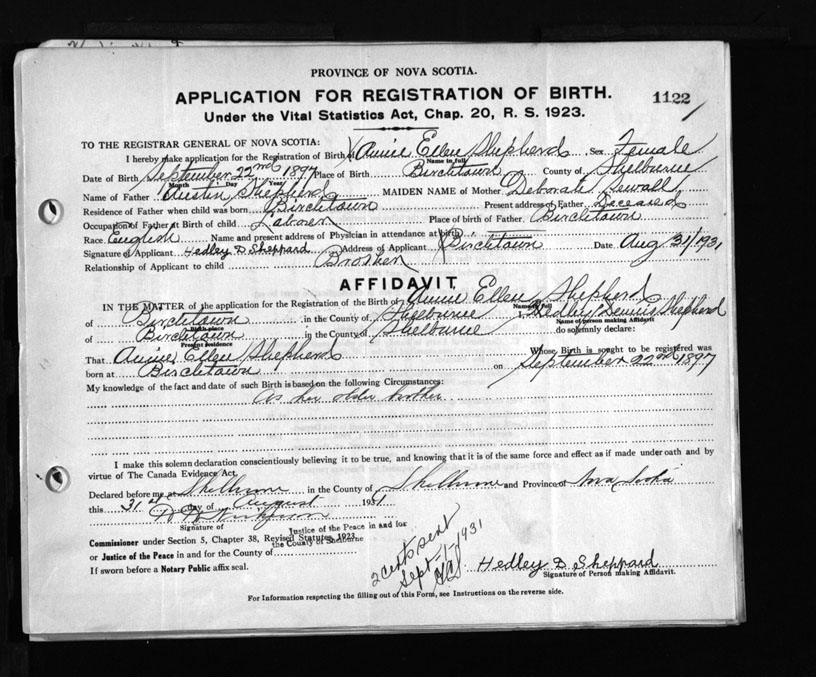 PROVINCE OF NOVA SCOTIA.
APPLICATION FOR REGISTRATION OF BIRTH. 1122
Under the Vital Statistics Act, Chap. 20, R. S. 1923.
TO THE REGISTRAR GENERAL OF NOVA SCOTIA:
I hereby make application for the Registration of Birth of Annie Ellen Shepherd Sex Female
Name in full
Date of Birth September 22nd 1897 Place of Birth Birchtown County of Shelburne
Month Day Year
Name of Father Austin Shepherd MAIDEN NAME of Mother Deborah Sewall
Residence of Father when child was born Birchtown Present address of Father Deceased
Occupation of Father at Birth of child Laborer Place of birth of Father Birchtown
Race English Name and present address of Physician in attendance at birth
Signature of Applicant Hedley D Sheppard Address of Applicant Birchtown Date Aug 31/1931
Relationship of Applicant to child Brother
AFFIDAVIT
IN THE MATTER of the application for the Registration of the Birth of Annie Ellen Shepherd
Name in full
of Birchtown in the County of Shelburne I, Hedley Dennis Shepherd
Birth place Name of person making Affidavit
of Birchtown in the County of Shelburne do solemnly declare:
Present residence
That Annie Ellen Shepherd Whose Birth is sought to be registered was
born at Birchtown on September 22nd 1897
My knowledge of the fact and date of such Birth is based on the following Circumstances:
As her older brother
I make this solemn declaration conscientiously believing it to be true, and knowing that it is of the same force and effect as if made under oath and by
virtue of The Canada Evidence Act.
Declared before me at Shelburne in the County of Shelburne and Province of Nova Scotia
this 31st day of August 1931
Signature of Justice of the Peace in and for
the County of Shelburne
Commissioner under Section 5, Chapter 38, Revised Statutes, 1923
or Justice of the Peace in and for the County of
If sworn before a Notary Public affix seal.
2 cents sent
Sept 1/1931
Hedley D Sheppard
Signature of Person making Affidavit.
For Information respecting the filling out of this Form, see Instructions on the reverse side.